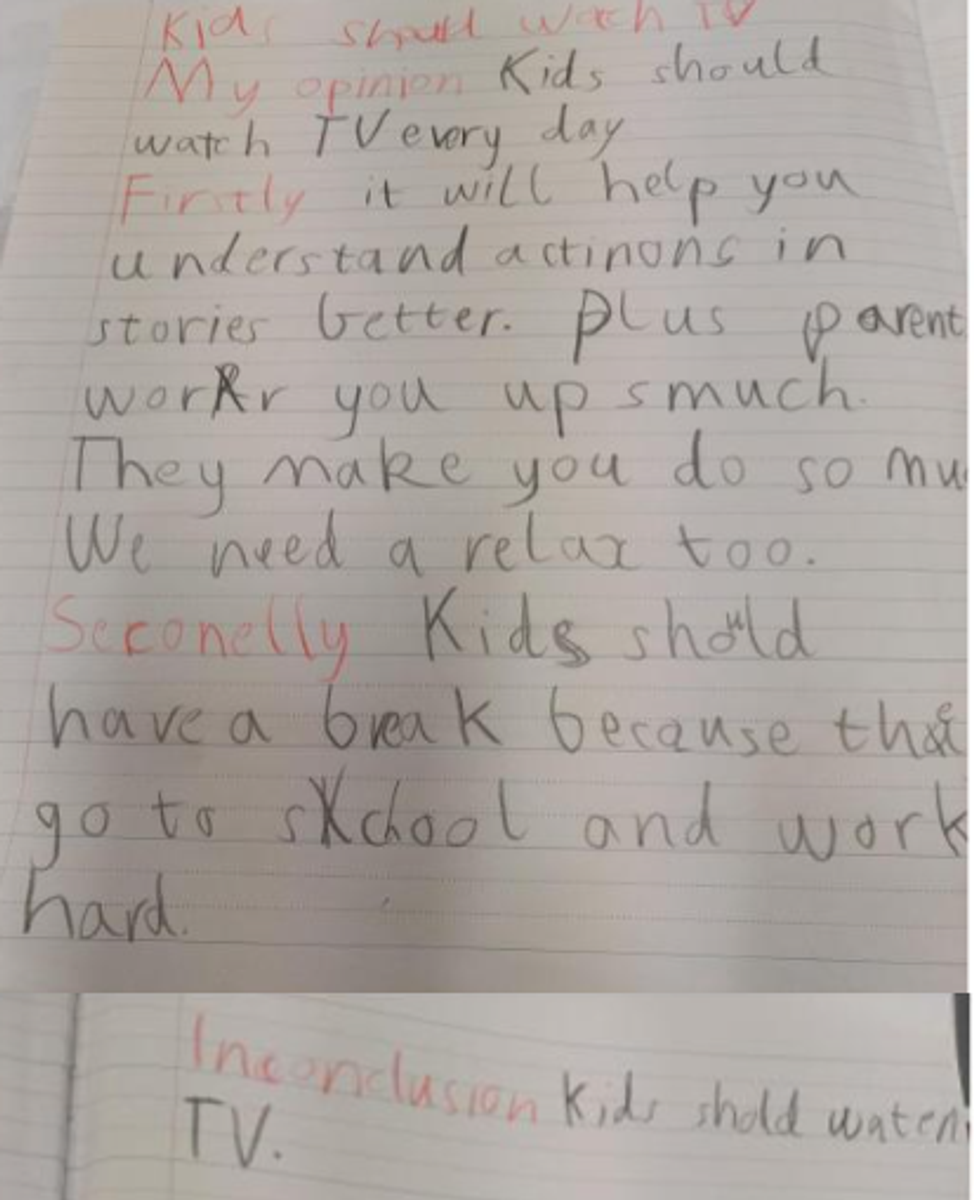 Kids should wach TV
My opinion Kids should
watch TV every day
Firstly it will help you
understand actinons in
stories better. Plus parent
workr you up smuch.
They make you do so mu
We need a relax too.
Seconelly Kids should
have a break because
go to school and work
hard.
Inconclusion Kids shold watch
TV.